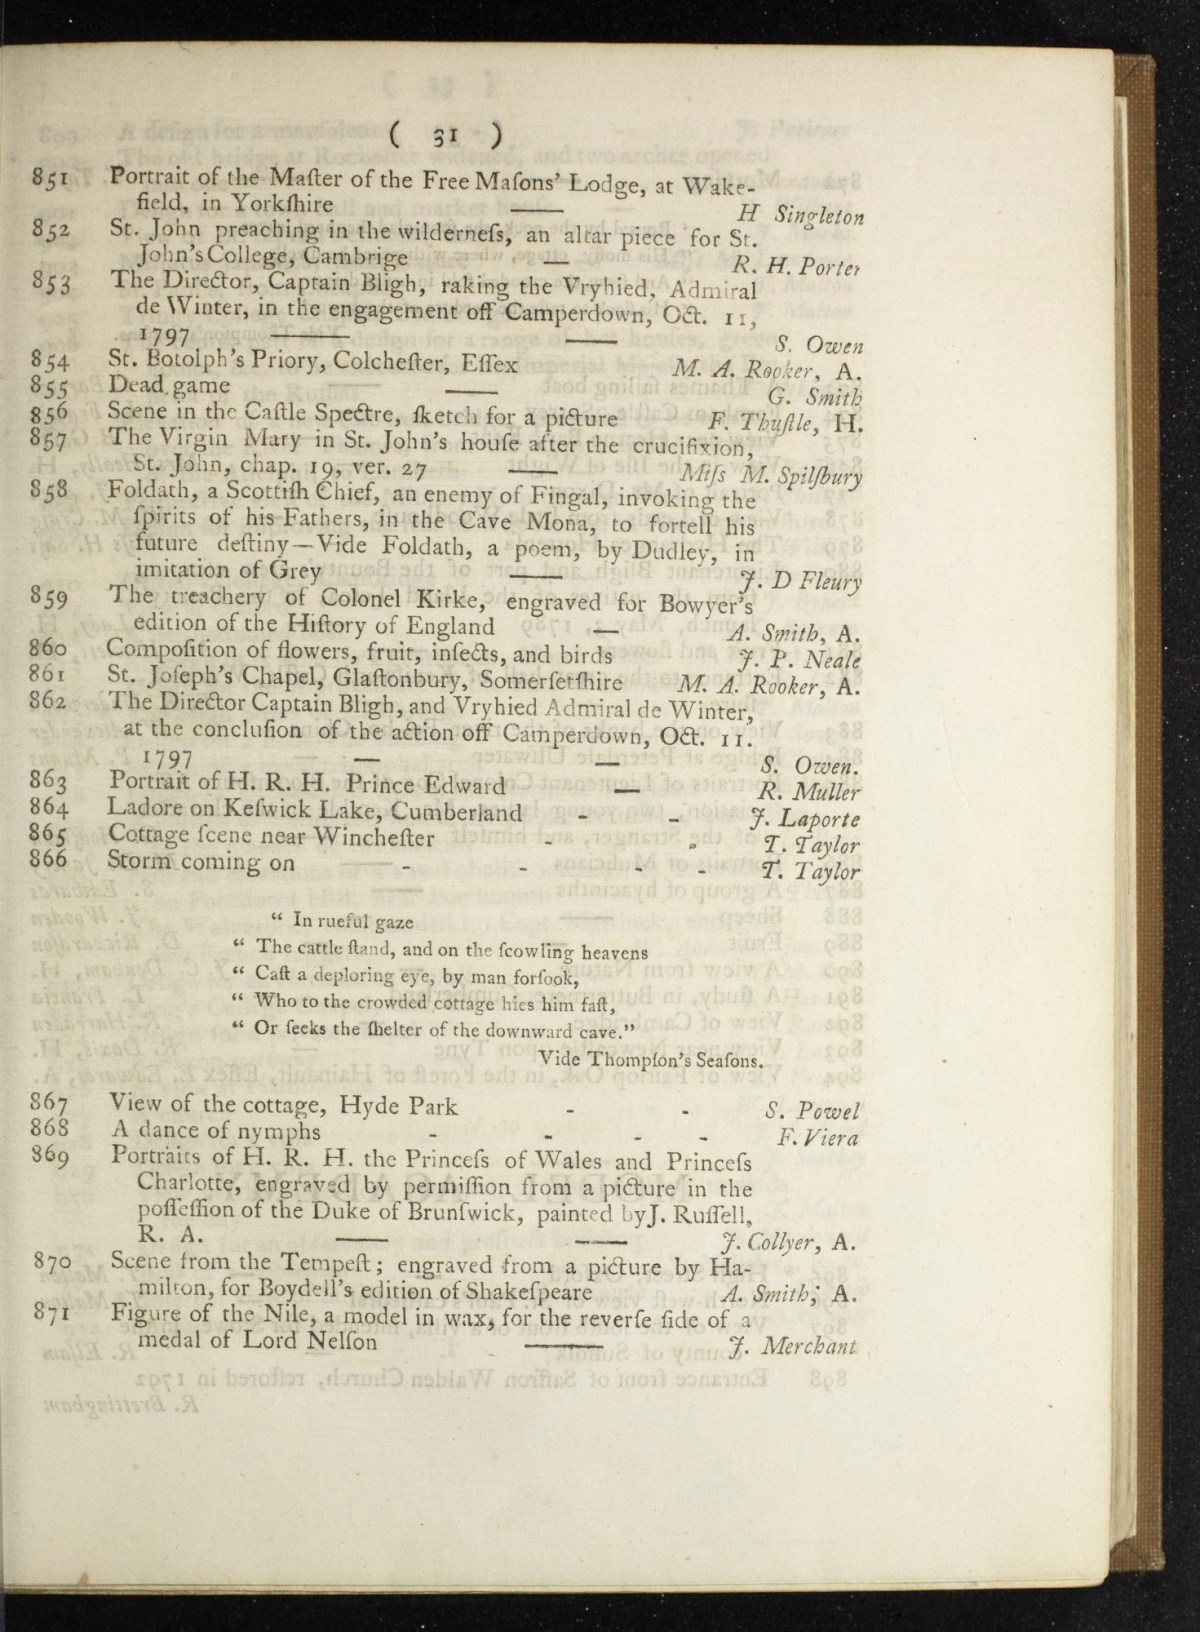 ( 31 )
851 Portrait of the Maſter of the Free Maſons' Lodge, at Wake-
field, in Yorkſhire —— H Singleton
852 St. John preaching in the wilderneſs, an altar piece for St.
John's College, Cambrige — R. H. Porter
853 The Director, Captain Bligh, raking the Vryhied, Admiral
de Winter, in the engagement off Camperdown, Oct. 11,
1797 —— —— S. Owen
854 St. Botolph's Priory, Colcheſter, Eſſex M. A. Rooker, A.
855 Dead game —— G. Smith
856 Scene in the Caſtle Spectre, ſketch for a picture F. Thuſtle, H.
857 The Virgin Mary in St. John's houſe after the crucifixion,
St. John, chap. 19, ver. 27 —— Miſs M. Spilſbury
858 Foldath, a Scottiſh Chief, an enemy of Fingal, invoking the
ſpirits of his Fathers, in the Cave Mona, to fortell his
future deſtiny—Vide Foldath, a poem, by Dudley, in
imitation of Grey —— J. D Fleury
859 The treachery of Colonel Kirke, engraved for Bowyer's
edition of the Hiſtory of England — A. Smith, A.
860 Compoſition of flowers, fruit, inſects, and birds J. P. Neale
861 St. Joſeph's Chapel, Glaſtonbury, Somerſetſhire M. A. Rooker, A.
862 The Director Captain Bligh, and Vryhied Admiral de Winter,
at the concluſion of the action off Camperdown, Oct. 11.
1797 — — S. Owen.
863 Portrait of H. R. H. Prince Edward — R. Muller
864 Ladore on Keſwick Lake, Cumberland - - J. Laporte
865 Cottage ſcene near Wincheſter - - T. Taylor
866 Storm coming on - - - - T. Taylor
“ In rueful gaze
“ The cattle ſtand, and on the ſcowling heavens
“ Caſt a deploring eye, by man forſook,
“ Who to the crowded cottage hies him faſt,
“ Or ſeeks the ſhelter of the downward cave.”
Vide Thompſon's Seaſons.
867 View of the cottage, Hyde Park - - S. Powel
868 A dance of nymphs - - - - F. Viera
869 Portraits of H. R. H. the Princeſs of Wales and Princeſs
Charlotte, engraved by permiſſion from a picture in the
poſſeſſion of the Duke of Brunſwick, painted by J. Ruſſell,
R. A. —— —— J. Collyer, A.
870 Scene from the Tempeſt; engraved from a picture by Ha-
milton, for Boydell's edition of Shakeſpeare A. Smith, A.
871 Figure of the Nile, a model in wax, for the reverſe ſide of a
medal of Lord Nelſon —— J. Merchant